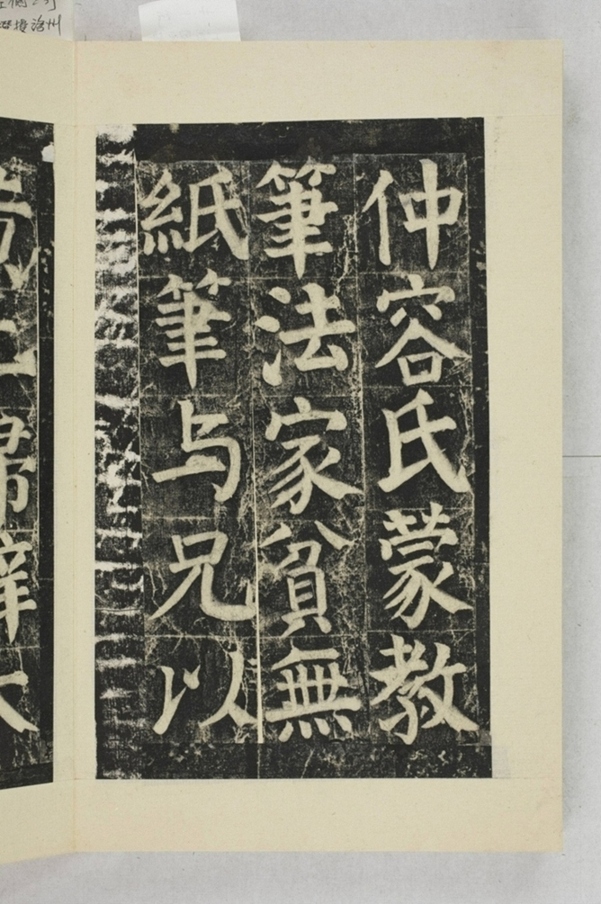 仲容氏蒙教
筆法家貧無
紙筆与兄以